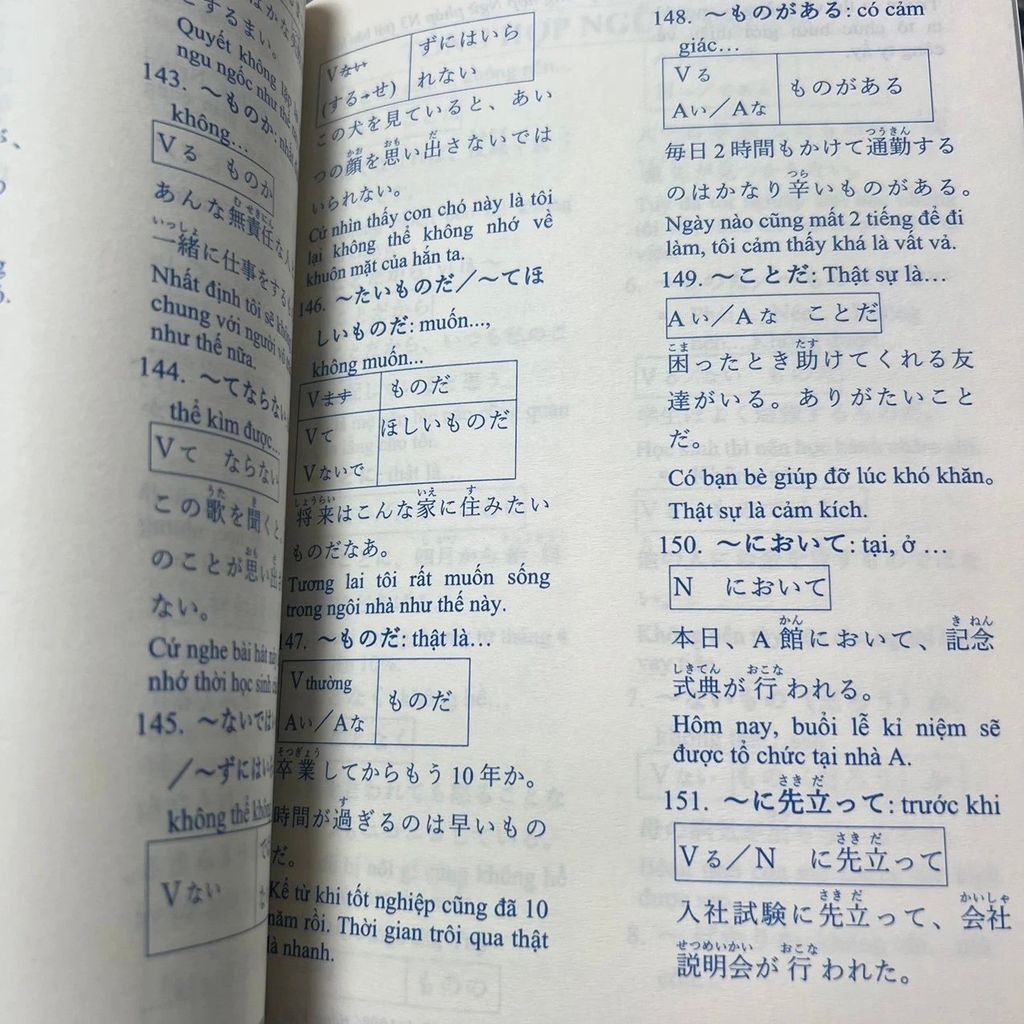 とするまい。
Quyết không lặp lại
ngu ngốc như thế
143. ～ものか:
không...
Vる ものか
あんな無責任な人
一緒に仕事をする
Nhất định tôi sẽ không
chung với người vô
như thế nữa.
144. ～てならない
thể kìm được...
Vて ならない
この歌を聞くと、
のことが思い出
ない。
Cứ nghe bài hát này
nhớ thời học sinh
145. ～ないでは
／～ずにはいら
không thể không
Vない
Vない
(する→せ)
ずにはいら
れない
この犬を見ていると、あい
つの顔を思い出さないでは
いられない。
Cứ nhìn thấy con chó này là tôi
lại không thể không nhớ về
khuôn mặt của hắn ta.
146. ～たいものだ／～てほ
しいものだ: muốn...,
không muốn...
Vます ものだ
Vて ほしいものだ
Vないで
将来はこんな家に住みたい
ものだなあ。
Tương lai tôi rất muốn sống
trong ngôi nhà như thế này.
147. ～ものだ: thật là...
V thường
Aい／Aな
ものだ
卒業してからもう10年か。
時間が過ぎるのは早いもの
だ。
Kể từ khi tốt nghiệp cũng đã 10
năm rồi. Thời gian trôi qua thật
là nhanh.
148. ～ものがある: có cảm
giác…
Vる
Aい／Aな
ものがある
毎日2時間もかけて通勤する
のはかなり辛いものがある。
Ngày nào cũng mất 2 tiếng để đi
làm, tôi cảm thấy khá là vất vả.
149. ～ことだ: Thật sự là…
Aい／Aな ことだ
困ったとき助けてくれる友
達がいる。ありがたいこと
だ。
Có bạn bè giúp đỡ lúc khó khăn。
Thật sự là cảm kích.
150. ～において: tại, ở …
N において
本日、A館において、記念
式典が行われる。
Hôm nay, buổi lễ kỉ niệm sẽ
được tổ chức tại nhà A.
151. ～に先立って: trước khi
Vる／N に先立って
入社試験に先立って、会社
説明会が行われた。